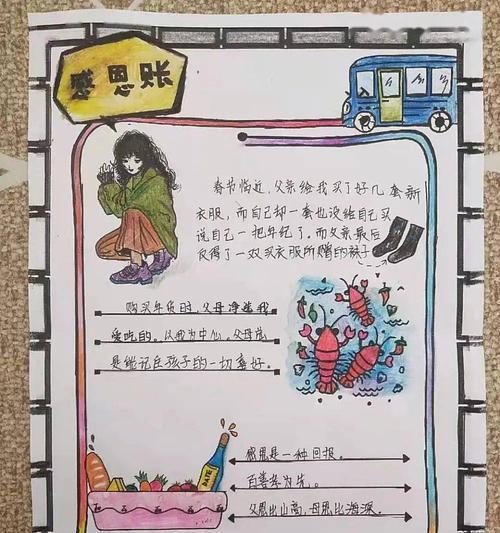 感恩账
春节临近，父亲给我买了好几套新
衣服，而自己却一套也没给自己买
说自己一把年纪了。而父亲最后
仅得了一双买衣服所赠的袜子
购买年货时，父母净选我
爱吃的。以我为中心，父母总
是能记住孩子的一切喜好。
感恩是一种回报。
百善孝为先。
父恩比山高，母恩比海深。
DATE